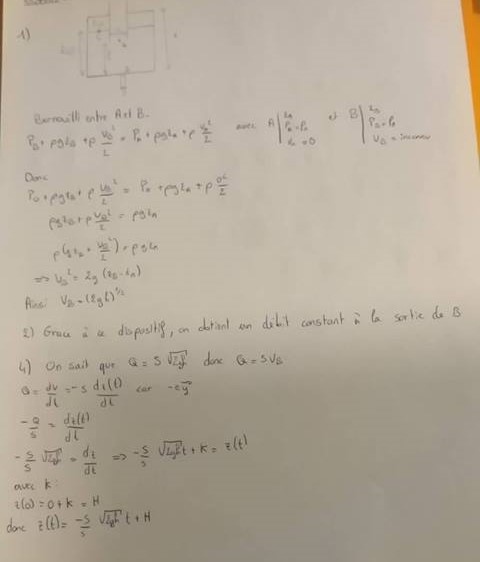 1)
Bernouilli entre A et B.
P_B + ρg z_B + ρ V_B²/2 = P_A + ρg z_A + ρ V_A²/2 avec A | z_A P_A = P_0 V_A = 0 et B | z_B P_B = P_0 V_B = inconnu
Donc
P_0 + ρg z_B + ρ V_B²/2 = P_0 + ρg z_A + ρ 0²/2
ρg z_B + ρ V_B²/2 = ρg z_A
ρ(g z_B + V_B²/2) = ρg z_A
=> V_B² = 2g (z_B - z_A)
Ainsi V_B = (2gh)^1/2
2) Grace à ce dispositif, on obtient un débit constant à la sortie de B
4) On sait que Q = S √2gh donc Q = S V_B
Q = dv/dt = -s dz(t)/dt car
-Q/s = dz(t)/dt
-S/s √2gh = dz/dt => -S/s √2gh t + K = z(t)
avec K :
z(0) = 0 + K = H
donc z(t) = -S/s √2gh t + H